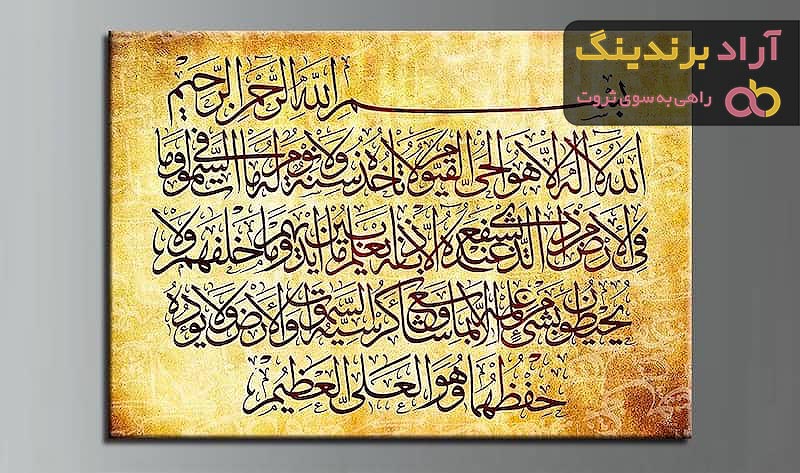 آراد برندینگ
راهی به سوی ثروت
بسم الله الرحمن الرحيم
الله لا اله الا هو الحي القيوم لا تأخذه سنة ولا نوم له ما في السموات وما
في الارض من ذا الذي يشفع عنده الا باذنه يعلم ما بين ايديهم وما خلفهم ولا
يحيطون بشيء من علمه الا بما شاء وسع كرسيه السموات والارض ولا يؤده
حفظهما وهو العلي العظيم